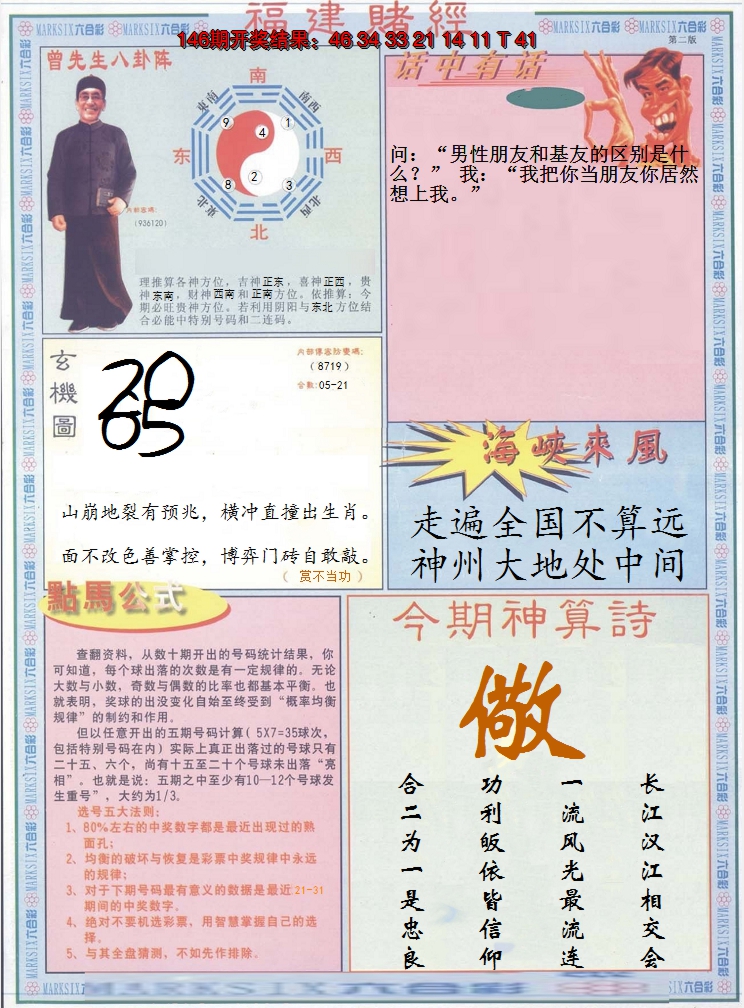 福建賭經
146期开奖结果：46 34 33 21 14 11 T 41
第二版
MARKSIX六合彩
曾先生八卦阵
南
東南
南西
9
4
1
东
西
8
2
3
東北
西北
北
内部密碼：
(936120)
理推算各神方位，吉神正东，喜神正西，贵
神东南，财神西南和正南方位。依推算：今
期必旺贵神方位。若利用阴阳与东北方位结
合必能中特别号码和二连码。
话中有话
问：“男性朋友和基友的区别是什
么？” 我：“我把你当朋友你居然
想上我。”
玄機圖
20
65
内部傳密防變碼：
（8719）
合数：05-21
山崩地裂有预兆，横冲直撞出生肖。
面不改色善掌控，博弈门砖自敢敲。
（ 赏不当功 ）
海峽來風
走遍全国不算远
神州大地处中间
點馬公式
查翻资料，从数十期开出的号码统计结果，你
可知道，每个球出落的次数是有一定规律的。无论
大数与小数，奇数与偶数的比率也都基本平衡。也
就表明，奖球的出没变化自始至终受到“概率均衡
规律”的制约和作用。
但以任意开出的五期号码计算（5X7=35球次，
包括特别号码在内）实际上真正出落过的号球只有
二十五、六个，尚有十五至二十个号球未出落“亮
相”。也就是说：五期之中至少有10—12个号球发
生重号”，大约为1/3。
选号五大法则：
1、80%左右的中奖数字都是最近出现过的熟
面孔；
2、均衡的破坏与恢复是彩票中奖规律中永远
的规律；
3、对于下期号码最有意义的数据是最近21-31
期间的中奖数字。
4、绝对不要机选彩票，用智慧掌握自己的选
择。
5、与其全盘猜测，不如先作排除。
今期神算詩
儆
长江汉江相交会
一流风光最流连
功利皈依皆信仰
合二为一是忠良